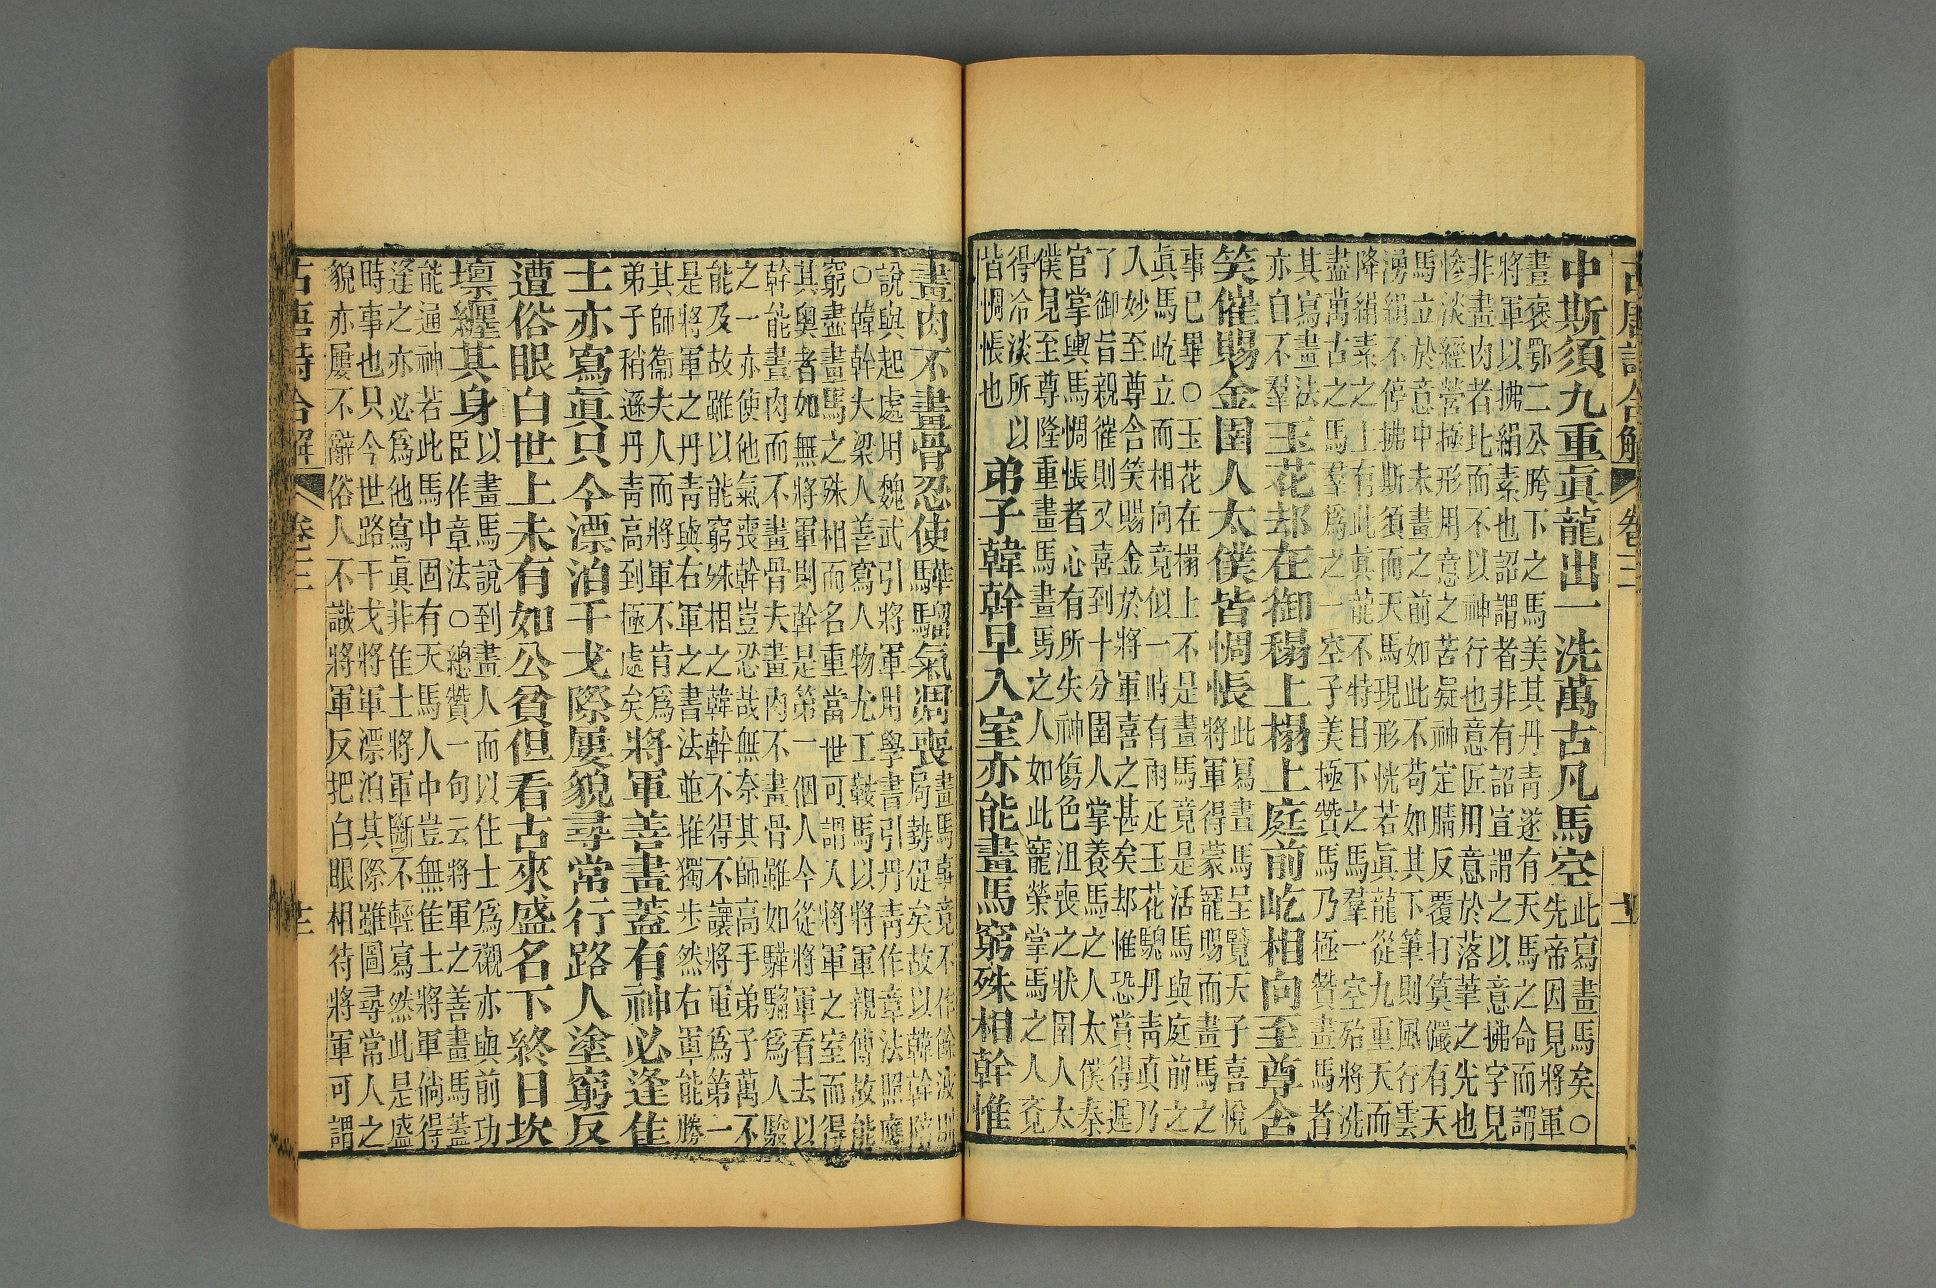 古唐詩合解 卷三 十一
中斯須九重真龍出一洗萬古凡馬空
此寫畫馬矣○
先帝因見將軍
畫褒鄂二公胯下之馬美其丹青遂有天馬之命而謂
將軍以拂絹素也詔謂者非有詔宣謂之以意拂字見
非畫肉者比而不以神行也意匠用意於落筆之先也
慘淡經營極形用意之苦凝神定睛反覆打算儼有天
馬立於意中未畫之前如此不苟如其下筆則風行雲
湧絹不停拂斯須而天馬現形恍若眞龍從九重天而
降絹素之上有此眞龍不特目下之馬羣一空殆將洗
盡萬古之馬羣為之一空子美極贊馬乃極贊畫馬者
其寫畫法
亦白不羣
玉花却在御榻上榻上庭前屹相向至尊含
笑催賜金圉人太僕皆惆悵
此寫畫馬呈覽天子喜悅
將軍得蒙寵賜而畫馬之
事已畢○玉花在榻上不是畫馬竟是活馬與庭前之
眞馬屹立而相向竟似一時有兩疋玉花驄丹靑眞乃
入妙至尊合笑賜金於將軍喜之甚矣却惟恐賞得遲
了御旨親催則又喜到十分圉人掌養馬之人太僕秦
官掌輿馬惆悵者心有所失神傷色沮喪之狀圉人太
僕見至尊隆重畫馬畫馬之人如此寵榮掌馬之人竟
得冷淡所以
皆惆悵也
弟子韓幹早入室亦能畫馬窮殊相幹惟
畫肉不畫骨忍使驊騮氣凋喪
畫馬事竟不作餘波則
局勢促矣故以韓幹陪
說與起處用魏武引將軍用學書引丹靑作章法照應
○韓幹大梁人善寫人物尤工鞍馬以將軍親傳故能
窮盡畫馬之殊相而名重當世可謂入將軍之室而得
其奧者如無將軍則幹是第一個人今從將軍看去以
幹能畫肉而不畫骨夫畫肉不畫骨雖如驊騮為人駿
之一亦使他氣喪幹豈忍哉無奈其師高手弟子萬不
能及故雖以能窮殊相之韓幹不得不讓將軍為第一
是將軍之丹靑與右軍之書法並推獨步然右軍能勝
其師衞夫人而將軍不肯為
弟子稍遜丹靑高到極處矣
將軍善畫蓋有神必逢佳
士亦寫眞只今漂泊干戈際屢貌尋常行路人塗窮反
遭俗眼白世上未有如公貧但看古來盛名下終日坎
壈纏其身
以畫馬說到畫人而以佳士為襯亦與前功
臣作章法○總贊一句云將軍之善畫馬蓋
能通神若此馬中固有天馬人中豈無佳士將軍倘得
逢之亦必為他寫眞非佳士將軍斷不輕寫然此是盛
時事也只今世路干戈將軍漂泊其際雖圖尋常人之
貌亦屢不辭俗人不識將軍反把白眼相待將軍可謂
古唐詩合解 卷三 十二